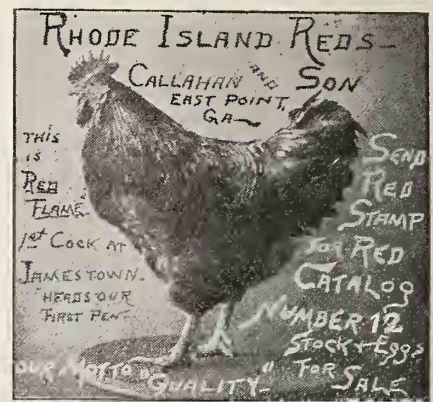 RHODE ISLAND REDS-
CALLAHAN AND SON
EAST POINT,
GA-
THIS
IS
RED
FLAME
1st COCK AT
JAMESTOWN-
"HEADS OUR
FIRST PEN"
SEND
RED
STAMP
FOR RED
CATALOG
NUMBER 12
STOCK & EGGS
FOR
SALE
OUR MOTTO "QUALITY-"